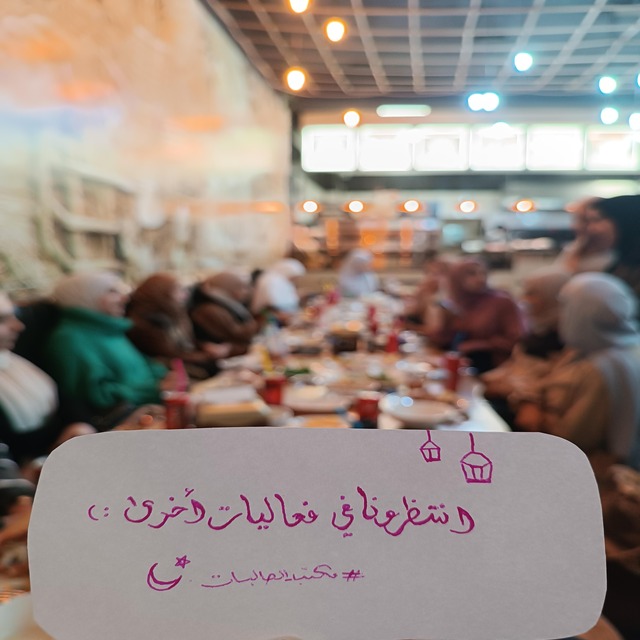 انتظرونا في فعاليات أخرى :)
#مكتب_الطالبات